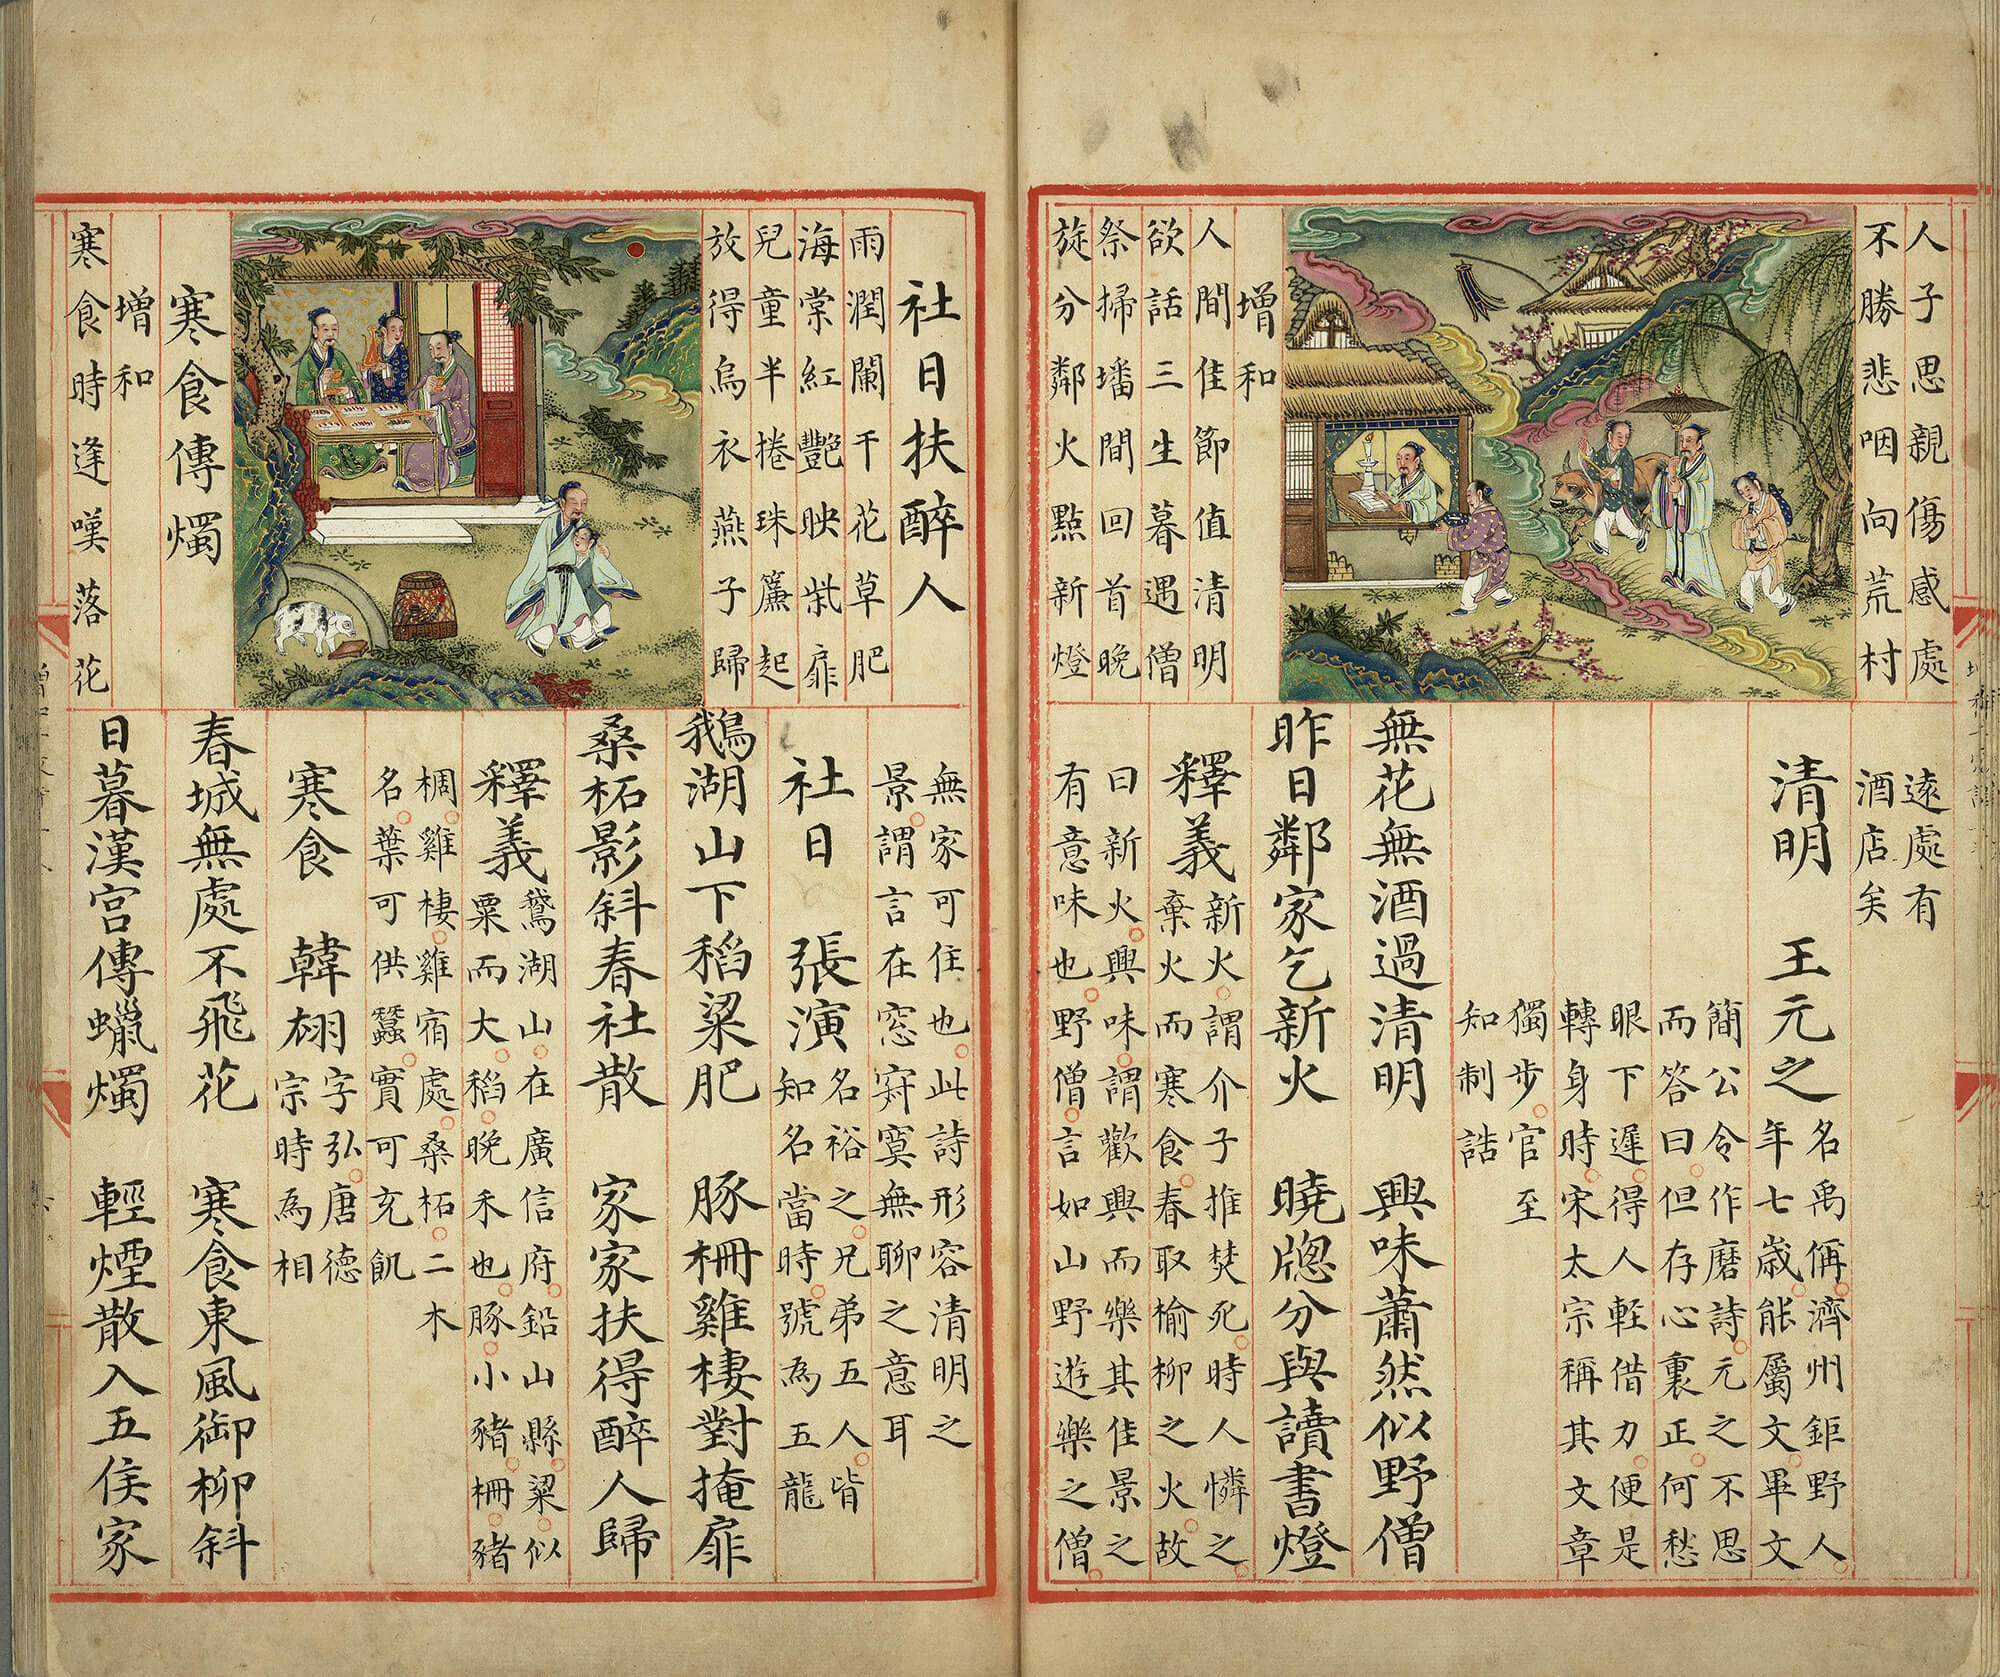 人子思親傷感處
不勝悲咽向荒村
增和
人間佳節值清明
欲話三生暮遇僧
祭掃墦間回首晚
旋分鄰火點新燈
遠處有
酒店矣
清明 王元之
名禹偁濟州鉅野人
年七歲能屬文畢文
簡公令作磨詩元之不思
而答曰但存心裏正何愁
眼下遲得人輊借力便是
轉身時宋太宗稱其文章
獨步官至
知制誥
無花無酒過清明 興味蕭然似野僧
昨日鄰家乞新火 曉牕分與讀書燈
釋義
新火謂介子推焚死時人憐之
棄火而寒食春取榆柳之火故
曰新火興味謂歡興而樂其佳景之
有意味也野僧言如山野遊樂之僧
社日扶醉人
雨潤闌干花草肥
海棠紅艷映柴扉
兒童半捲珠簾起
放得烏衣燕子歸
寒食傳燭
增和
寒食時逢嘆落花
無家可住也此詩形容清明之
景謂言在窓寂寞無聊之意耳
社日 張演
名裕之兄弟五人皆
知名當時號為五龍
鵝湖山下稻粱肥 豚柵雞棲對掩扉
桑柘影斜春社散 家家扶得醉人歸
釋義
鵞湖山在廣信府鉛山縣粱似
粟而大稻晚禾也豚小豬柵豬
椆雞棲雞宿處桑柘二木
名葉可供蠶實可充飢
寒食 韓翃
字弘唐德
宗時為相
春城無處不飛花 寒食東風御柳斜
日暮漢宮傳蠟燭 輕煙散入五侯家